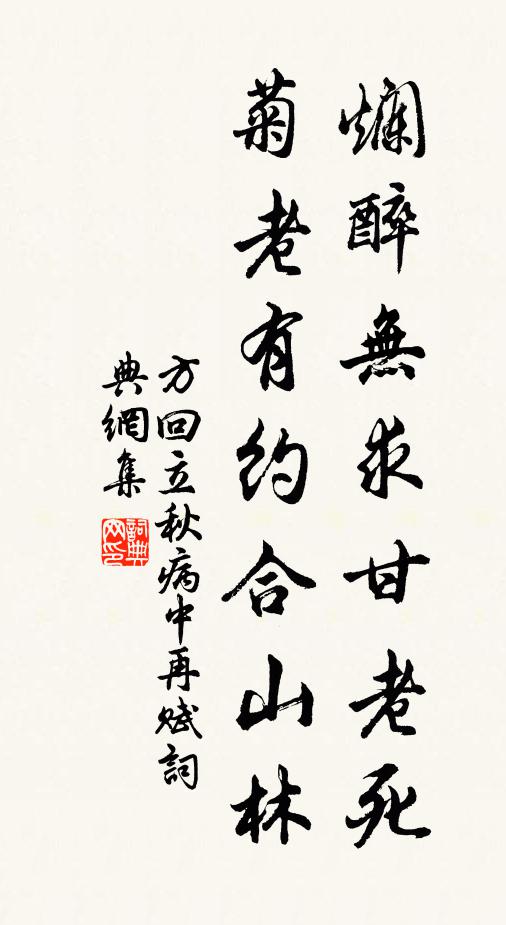 爛醉無求甘老死
菊老有約合山林
方回立秋病中再賦詞
典網集
詞典网印